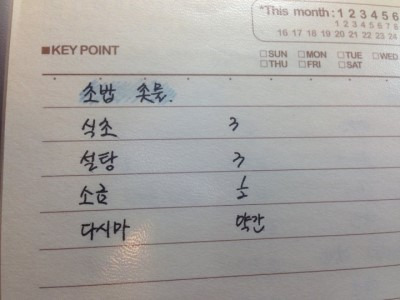 *This month : 1 2 3 4 5 6
1 2 3 4 5 6 7 8
16 17 18 19 20 21 22 23 24
■KEY POINT
□SUN □MON □TUE □WED
□THU □FRI □SAT
초밥 촛물.
식초 3
설탕 3
소금 1/2
다시마 약간